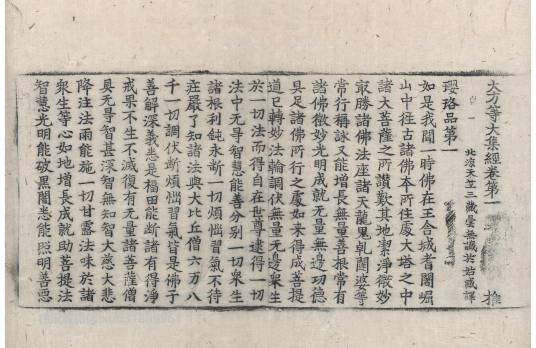 大方等大集經卷第一 推
北涼天竺三藏曇無讖於姑臧譯
瓔珞品第一
如是我聞一時佛在王舍城耆闍崛
山中往古諸佛本所住處大塔之中
諸大菩薩之所讚歎其地潔淨微妙
㝡勝諸佛法座諸天龍鬼乹闥婆等
常行稱詠又能增長無量善根常有
諸佛微妙光明成就无量無邊功德
具足諸佛所行之處如來得成菩提
道已轉妙法輪調伏無量無邊衆生
於一切法而得自在世尊逮得一切
法中无㝵智慧能善分別一切衆生
諸根利鈍永斷一切煩惱習氣不待
莊嚴了知諸法與大比丘僧六万八
千一切調伏斷煩惱習氣皆是佛子
善解深義悉是福田能斷諸有得淨
戒果不生不滅復有无量諸菩薩僧
具无㝵智甚深智無知智大慈大悲
降注法雨能施一切甘露法味於諸
衆生等心如地增長成就助菩提法
智慧光明能破黑闇悉能照明善惡